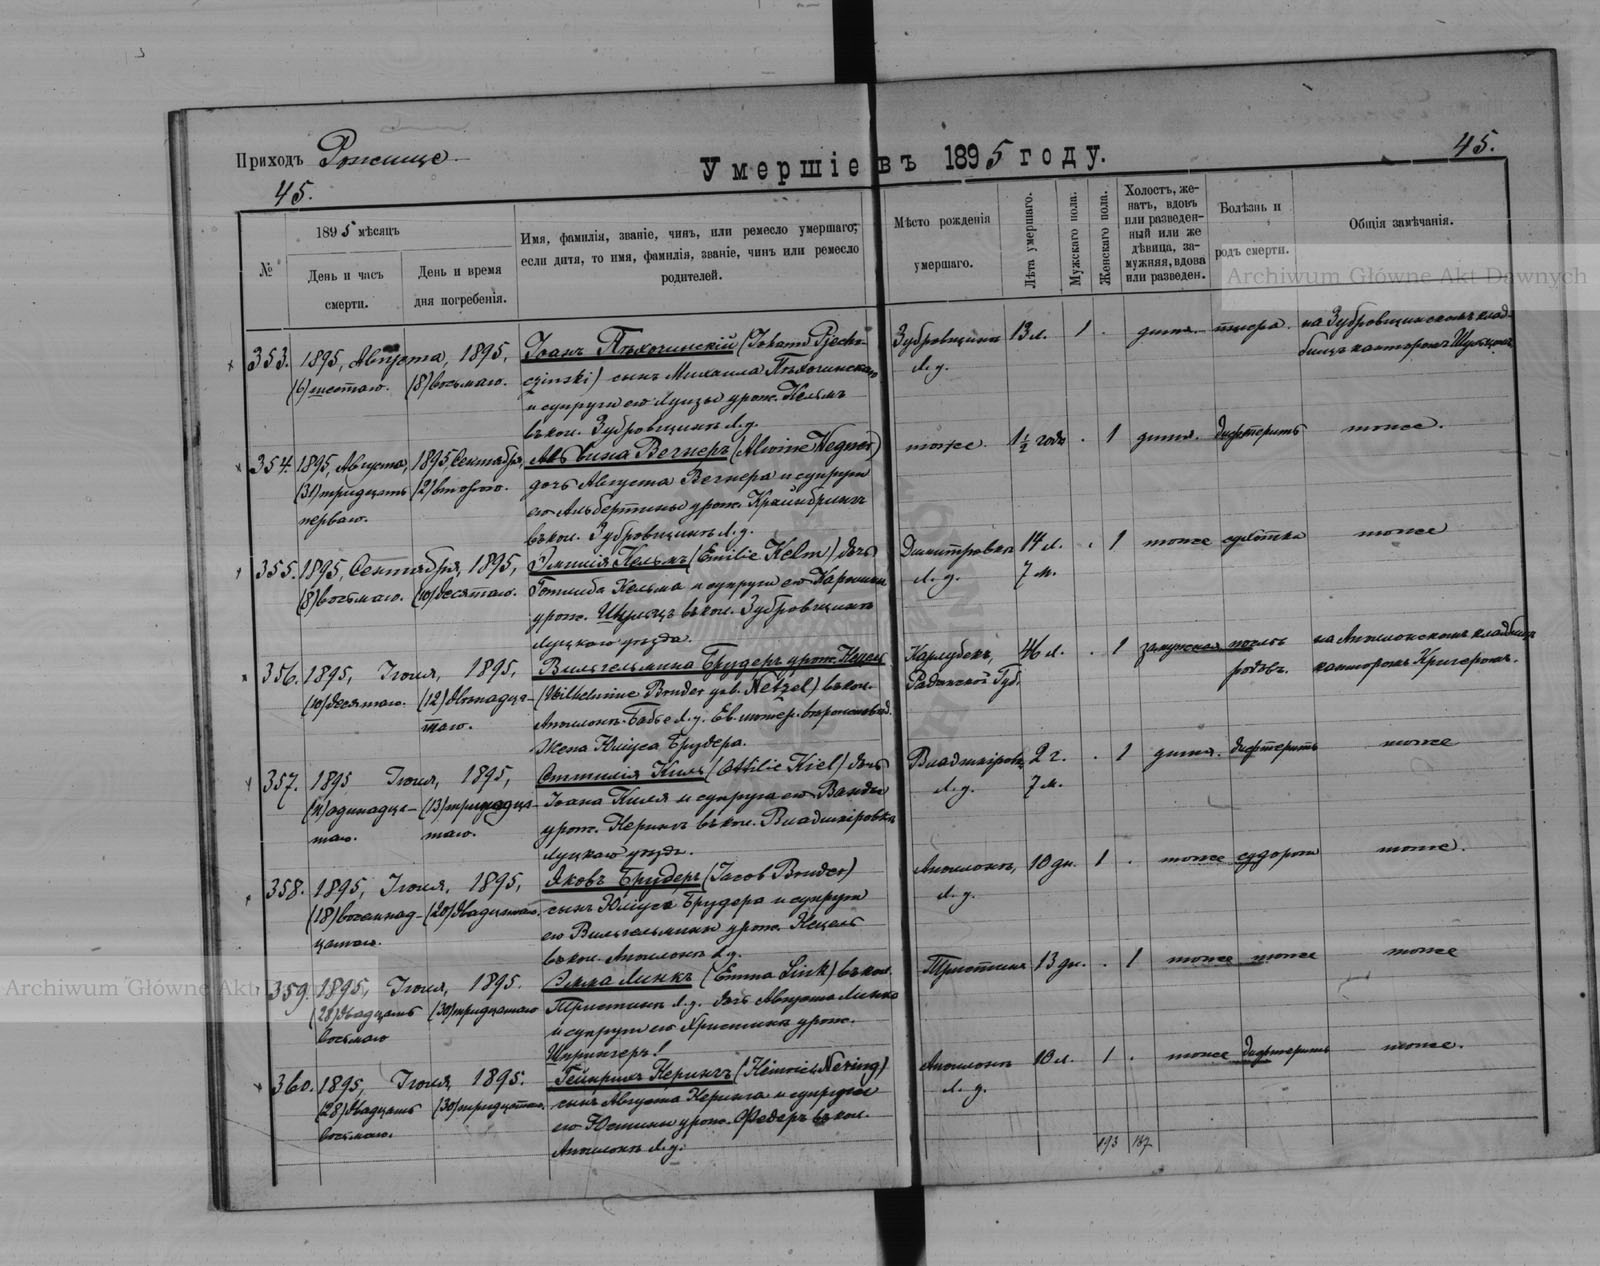 Приходъ Рожище
Умершіе въ 1895 году.
45.
45.
№
1895 мѣсяцъ
День и часъ смерти.
День и время дня погребенія.
Имя, фамилія, званіе, чинъ, или ремесло умершаго;
если дитя, то имя, фамилія, званіе, чинъ или ремесло
родителей.
Мѣсто рожденія
умершаго.
Лѣта умершаго.
Мужскаго пола.
Женскаго пола.
Холостъ, же-
натъ, вдовъ
или разведен-
ный или же
дѣвица, за-
мужняя, вдова
или разведен.
Болѣзнь и
родъ смерти.
Общія замѣчанія.
Archiwum Główne Akt Dawnych
353. 1895, Августа, 1895, Іоанъ Пѣхочинскій (Johann Pjecho- Зубровщина 13 л. 1 . дитя. на Зубровщинскомъ клад-
(6) шестаго. (8) восьмаго. czinski) сынъ Михаила Пѣхочинскаго Л. у. бищѣ канторомъ
и супруги его Луизы урож. Кельмъ
въ кол. Зубровщинѣ Л. у.
354. 1895, Августа, 1895, Сентября, Альвина Вегнеръ (Alwine Wegner) тоже 1½ года . 1 дитя. дифтеритъ тоже.
(31) тридцать (2) втораго. дочь Августа Вегнера и супруги
перваго. его Альбертины урож.
въ кол. Зубровщинѣ Л. у.
355. 1895, Сентября, 1895, Эмилія Кельмъ (Emilie Kelm) дочь Димитровка 14 л. . 1 тоже тоже
(8) восьмаго. (10) десятаго. Готлиба Кельма и супруги его Каролины Л. у. 7 м.
урож. въ кол. Зубровщинѣ
Луцкаго уѣзда.
356. 1895, Іюля, 1895, Вильгельмина Брудеръ урож. Нецель 46 л. . 1 замужняя послѣ на Аполонскомъ кладбищѣ
(10) десятаго. (12) двѣнадца- (Wilhelmine Bruder geb. Netzel) въ кол. Губ. родовъ. канторомъ Кригеромъ.
таго. Жена Юліуса Брудера.
357. 1895 Іюля, 1895, Оттилія Киль (Ottilie Kiel) дочь Владиміровка 2 г. . 1 дитя. дифтеритъ тоже
(11) одинадца- (13) тринадца- Іоана Киля и супруги его Ванды Л. у. 7 м.
таго. таго. урож. Нерингъ въ кол. Владиміровкѣ
Луцкаго уѣзда.
358. 1895, Іюля, 1895, Яковъ Брудеръ (Jacob Bruder) Аполонія, 10 дн. 1 . тоже судороги тоже.
(18) восемнад- (20) двадцатаго. сынъ Юліуса Брудера и супруги Л. у.
цатаго. его Вильгельмины урож. Нецель
въ кол. Аполоніи Л. у.
Archiwum Główne Akt
359. 1895, Іюля, 1895. Эмма Линкъ (Emma Link) въ кол. 13 дн. . 1 тоже тоже тоже
(28) двадцать (30) тридцатаго Л. у. дочь Августа Линка
восьмаго и супруги его Христины урож.
Шпрингеръ!
360. 1895, Іюля, 1895. Гейнрихъ Нерингъ (Heinrich Nering) Аполонія 10 л. 1 . тоже дифтеритъ тоже.
(28) двадцать (30) тридцатаго. сынъ Августа Неринга и супруги Л. у.
восьмаго. его Юстины урож. Федеръ въ кол.
Аполоніи Л. у.
193 167